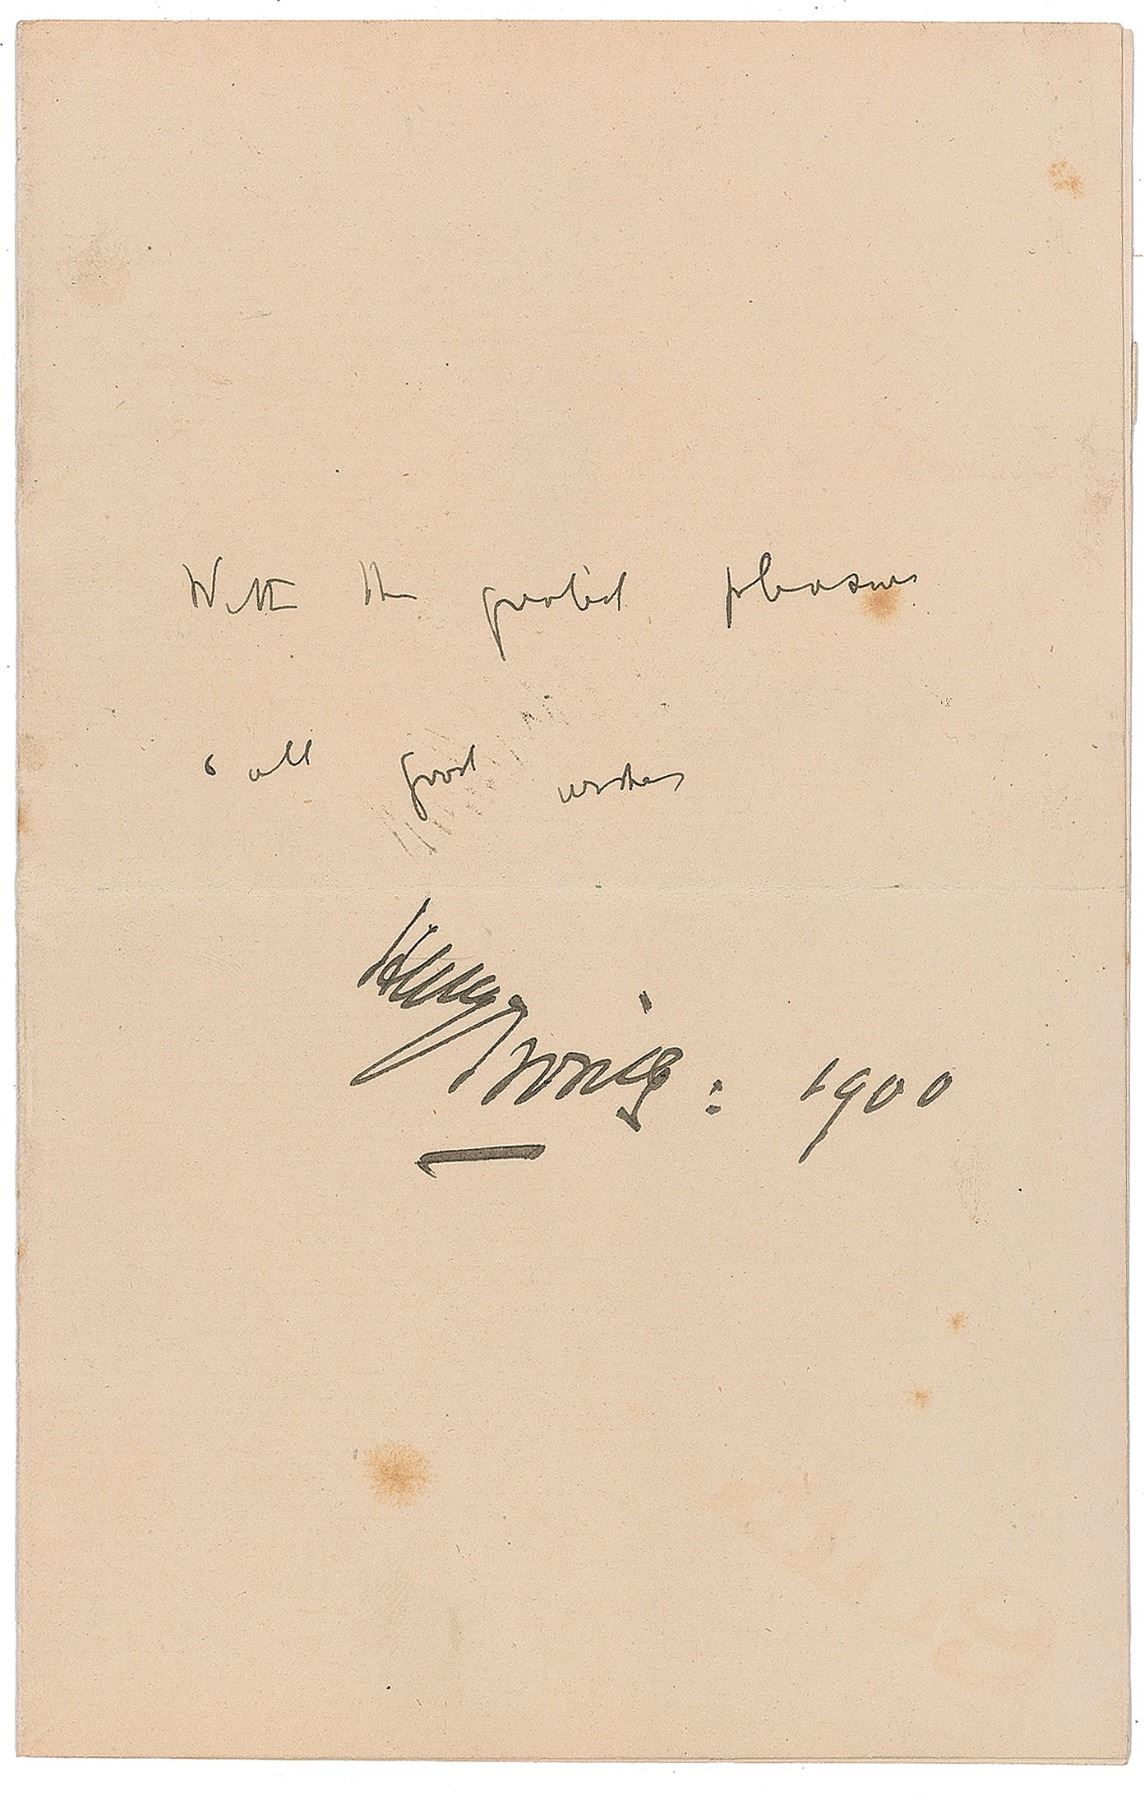 With the greatest pleasure
& all good wishes
Henry Irving: 1900